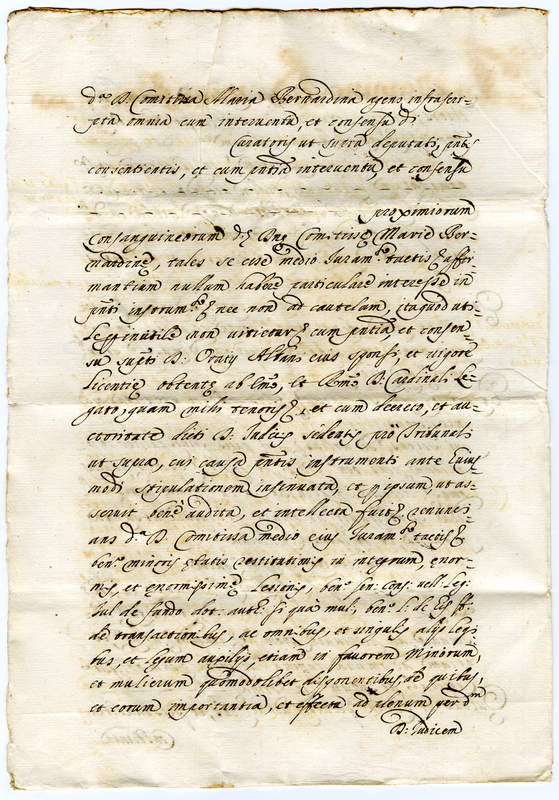 d.ª D. Comitissa Maria Bernardina agens infrascri=
pta omnia cum interventu, et consensu di
Curatoris ut supra deputati, pñtis
consentientis, et cum pñtia interventu, et consensu
proximiorum
Consanguineorum d. Dnę Comitissę Marię Ber=
nardinę, tales se esse medio Juram.to tactis affir=
mantium nullum habere particulare interesse in
pñti instrum.to nec non ad cautelam, itaquod uti=
le p inutile non vitietur cum pñtia, et consen=
su supti D. Oratij Altani eius sponsi, et vigore
licentię obtentę ab Emo, et Rmo D. Cardinali Le=
gato, quam mihi tenoris, et cum decreto, et au=
ctoritate dicti D. Judicis sedentis pro Tribunali
ut supra, cui causa pñtis instrumenti ante huius=
modi stipulationem insinuata, et p ipsum, ut as=
seruit bene audita, et intellecta fuit, renunci=
ans d.ª D. Comitissa medio eius Juram.to tactis
ben. minoris ętatis restitutionis in integrum, enor=
mis, et enormissimę lesionis, ben. Sen. Cons. Vell. Leg.
Jul. de fundo dot. auth. si qua mul. ben. l.
de transactionibus, ac omnibus, et singulis alijs legi
bus, et legum auxilijs, etiam in favorem Minorum,
et mulierum quomodolibet disponentibus, de quibus,
et eorum importantia, et effectu ad plenum per d.m
D. Judicem